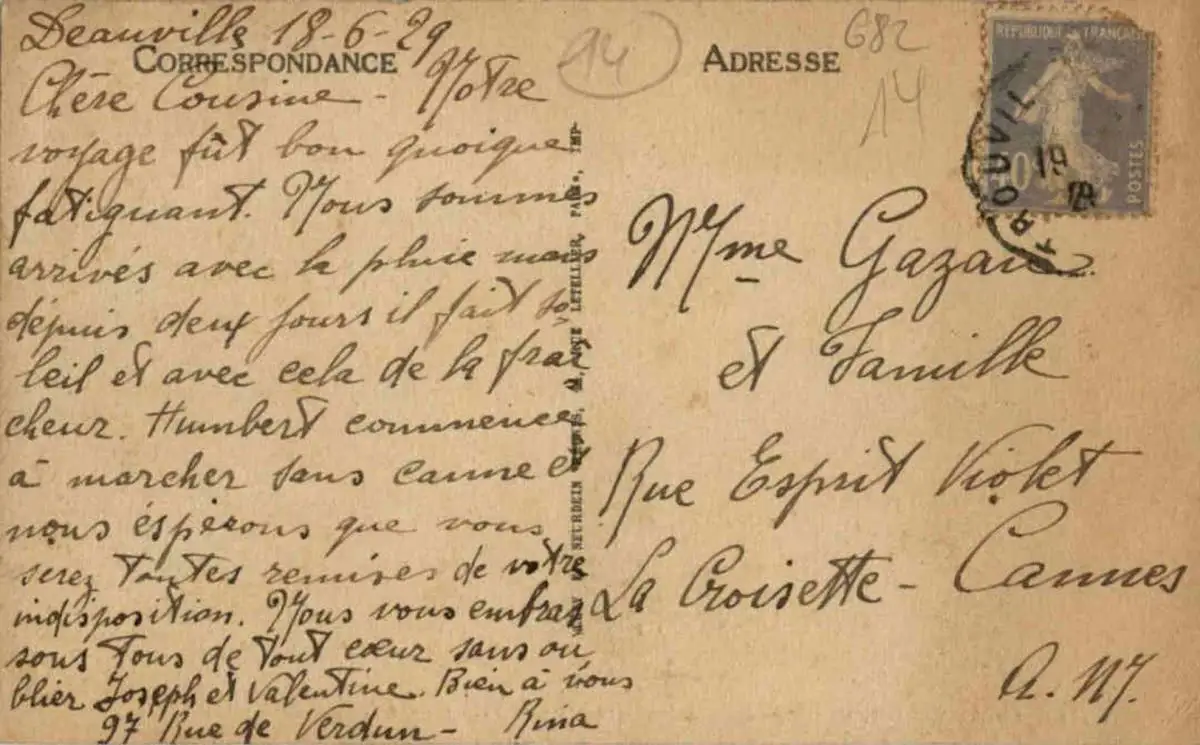 Deauville 18-6-29
CORRESPONDANCE
Chère Cousine - Notre
voyage fût bon quoique
fatiguant. Nous sommes
arrivés avec la pluie mais
dépuis deux jours il fait so
leil et avec cela de la fraî
cheur. Humbert commence
à marcher sans canne et
nous éspèrons que vous
serez toutes remises de votre
indisposition. Nous vous embras
sons tous de tout cœur sans ou
blier Joseph et Valentine. Bien à vous
97 Rue de Verdun - Rina
14
ADRESSE
682
14
RÉPUBLIQUE FRANÇAISE
POSTES
TROUVIL
19
Mme Gazan
et Famille
Rue Esprit Violet
La Croisette - Cannes
A. M.
NEURDEIN RÉUNIS, LETELLIER, PARIS, IMP.